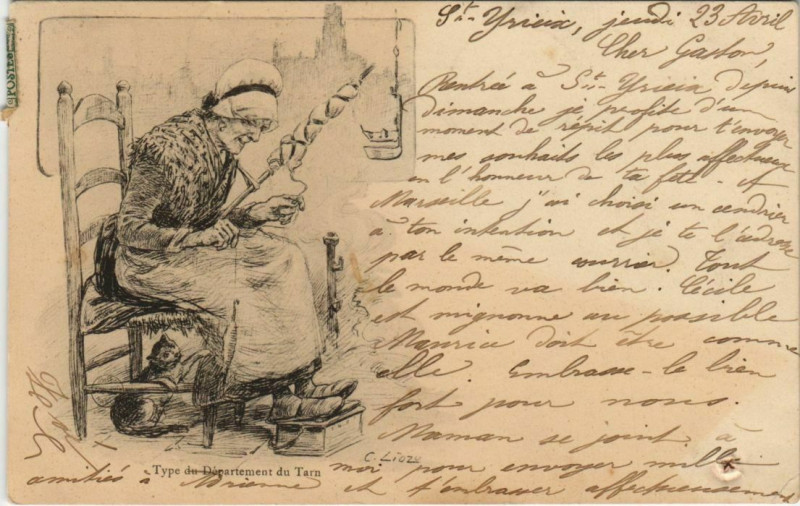 St-Yrieix, jeudi 23 Avril
Cher Gaston,
Rentrée à St-Yrieix depuis
dimanche je profite d'un
moment de répit pour t'envoyer
mes souhaits les plus affectueux
en l'honneur de ta fête. A
Marseille j'ai choisi un cendrier
à ton intention et je te l'adresse
par le même courrier. Tout
le monde va bien. Cécile
est mignonne au possible
Maurice doit être comme
elle. Embrasse-le bien
fort pour nous.
Maman se joint à
moi pour envoyer mille
amitiés à Adrienne et t'embrasser affectueusement
C. Lioze
Type du Département du Tarn